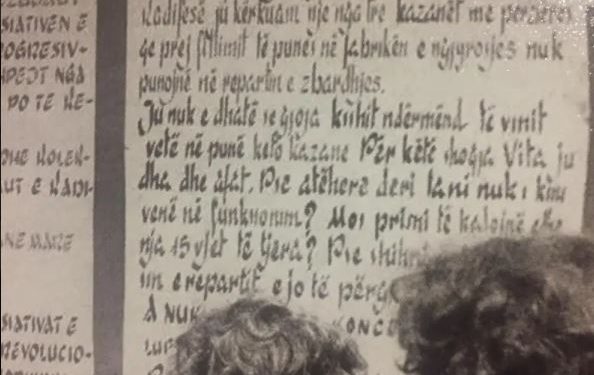 SIATIVEN E
OGRESIV-
NGA
PO TE KE-
DHE KOLEK-
UT E KADI-
MARE
SIATIVAT E
REVOLUCIO-
Kadifesë ju kërkuam një nga tre kazanët me përzierës
qe prej fillimit të punës në fabrikën e ngjyrosjes nuk
punojnë në repartin e zbardhjes.
Ju nuk e dhatë se gjoja kishit ndërmënd të vinit
vetë në punë keto kazane Për këtë shoqja Vita ju
dha dhe afat. Pse atëhere deri tani nuk i keni
venë në funksionim? Mos prisni të kalojnë edhe
nja 15 vjet të tjera? Pse
im e repartit e jo të
A NUK